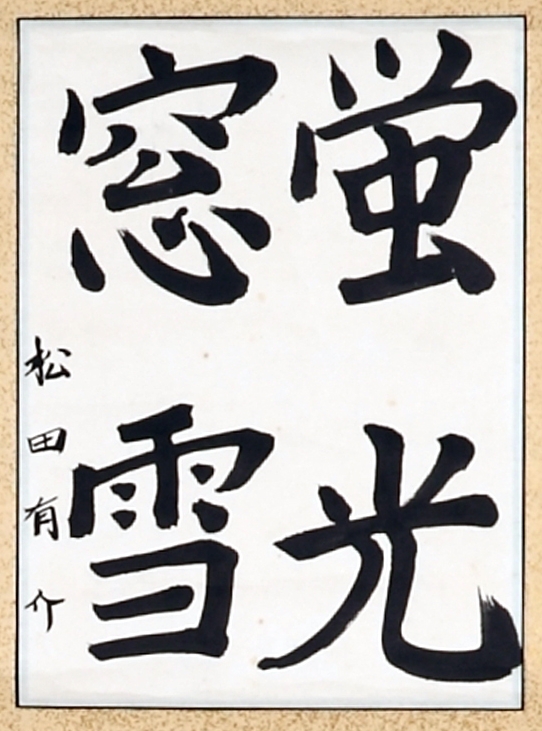 蛍光
窓雪
松田有介